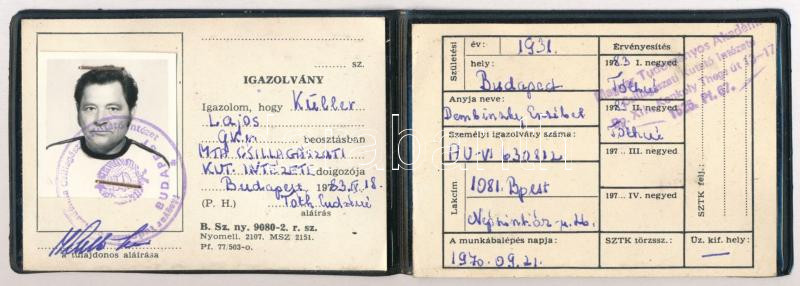 sz.
IGAZOLVÁNY
Igazolom, hogy Küller
Lajos
Gkv. beosztásban
MTA CSILLAGÁSZATI
KUT. INTÉZETE dolgozója
Budapest 1983. IV. 18.
(P. H.) Tóth
aláírás
B. Sz. ny. 9080-2. r. sz.
Nyomell. 2107. MSZ 2151.
Pf. 77/503-o.
a tulajdonos aláírása
Születési
év: 1931.
hely:
Budapest
Anyja neve:
Dembinszky Erzsébet
Személyi igazolvány száma:
AU-VI 630812
Lakcím
1081. Bpest
Népszínház u.
A munkábalépés napja:
1970. 09. 21.
Érvényesítés
1983 I. negyed
Tóthné
1983 II. negyed
Tóthné
197... III. negyed
197... IV. negyed
SZTK törzssz.:
SZTK felj.:
Üz. kif. hely:
—
Magyar Tudományos Akadémia
Csillagászati Kutató Intézete
Konkoly Thege út 13-17.
BUDAPEST